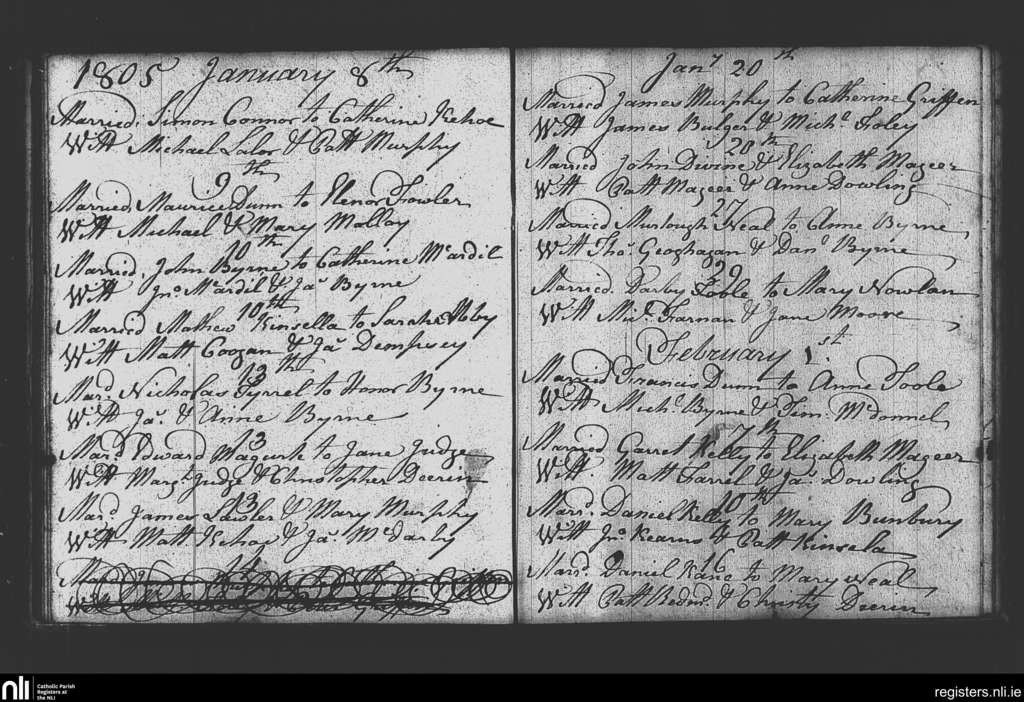 1805 January 8th
Married. Simon Connor to Catherine Kehoe
Witt Michael Lalor & Patt Murphy
9th
Married, Maurice Dunn to Elenor Fowler
Witt Michael & Mary Molloy
10th
Married, John Byrne to Catherine McArdil
Witt Jno. McArdil & Ja. Byrne
10th
Married Mathew Kinsella to Sarah
Witt Matt Coogan & Ja. Dempsey
13th
Mard. Nicholas Tyrrel to Honor Byrne
Witt Ja. & Anne Byrne
13
Mard. Edward Magurk to Jane Judge
Witt Margt. Judge & Christopher Deerin
13
Mard. James Lawler & Mary Murphy
Witt Matt Kehoe & Ja. McDarby
Jany 20th
Married James Murphy to Catherine Griffen
Witt James Bulger & Michl. Foley
20th
Married John Divine & Elizabeth Mageer
Witt Patt Mageer & Anne Dowling
27
Married Murtough Neal to Anne Byrne
Witt Thos. Geoghagan & Danl. Byrne
29
Married. Darby Toole to Mary Nowlan
Witt Mic. Farnan & Jane Moore
February 1st
Married Francis Dunn to Anne Toole
Witt Michl. Byrne & Tim. McDonnel
7th
Married Garret Kelly to Elizabeth Mageer
Witt. Matt Farrel & Ja. Dowling
10th
Mard. Daniel Kelly to Mary Bunbury
Witt Jno. Kearns & Patt Kinsela
16
Mard. Daniel Kane to Mary Neal
Witt Patt Redmd. & Christy Deerin
nli Catholic Parish
Registers at
the NLI
registers.nli.ie